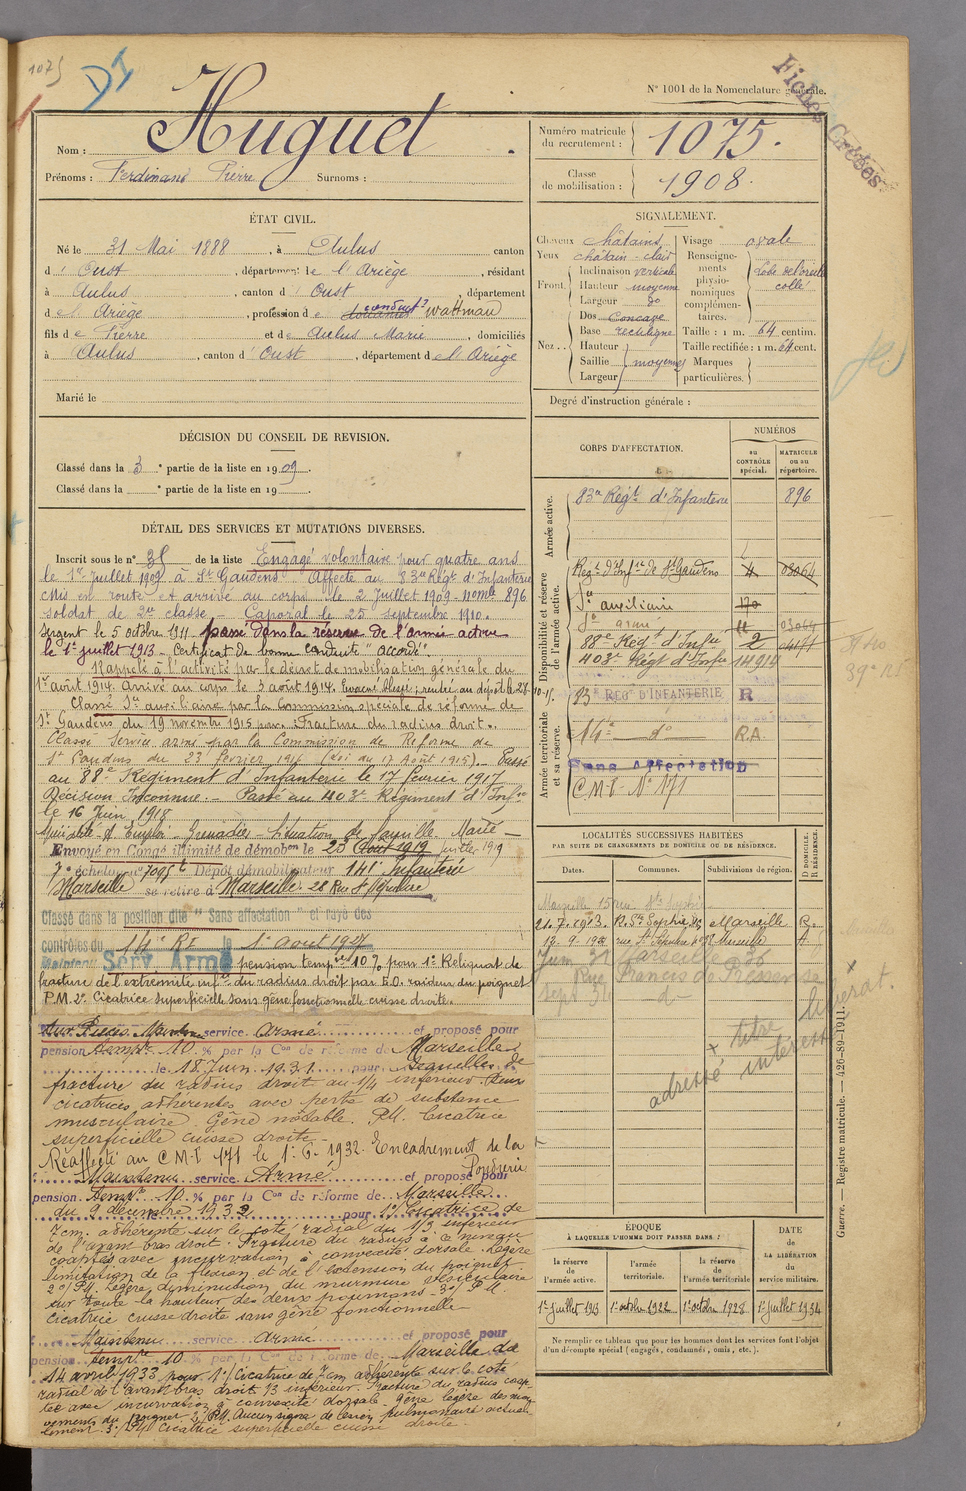 1075
DI
N° 1001 de la Nomenclature générale.
Fiches Créées
Nom : Huguet
Prénoms : Ferdinand Pierre Surnoms :
Numéro matricule
du recrutement : 1075.
Classe
de mobilisation : 1908.
ÉTAT CIVIL.
Né le 31 Mai 1888, à Aulus canton
d' Oust, département de l'Ariège, résidant
à Aulus, canton d' Oust, département
de l'Ariège, profession de wattman
fils de Pierre et de Aulus Marie domiciliés
à Aulus, canton d' Oust, département de l'Ariège
Marié le
SIGNALEMENT.
Cheveux châtains
Yeux châtain-clair
Front. Inclinaison verticale
Hauteur moyenne
Largeur do
Nez.. Dos Concave
Base rectiligne
Hauteur
Saillie moyennes
Largeur
Visage ovale
Renseignements physionomiques complémentaires. Lobe de l'oreille collé
Taille : 1 m. 64 centim.
Taille rectifiée : 1 m. 64 cent.
Marques
particulières.
Degré d'instruction générale :
DÉCISION DU CONSEIL DE REVISION.
Classé dans la 3e partie de la liste en 1909.
Classé dans la e partie de la liste en 19
DÉTAIL DES SERVICES ET MUTATIONS DIVERSES.
Inscrit sous le n° 35 de la liste Engagé volontaire pour quatre ans
le 1er Juillet 1909 à St Gaudens Affecté au 83e Régt d'Infanterie
Mis en route et arrivé au corps le 2 Juillet 1909 - n° mle 896
soldat de 2e classe Caporal le 25 septembre 1910.
Sergent le 5 octobre 1911 - passé dans la réserve de l'armée active
le 1er juillet 1913 - Certificat de bonne conduite "accordé".
Rappelé à l'activité par le décret de mobilisation générale du
1er août 1914. Arrivé au corps le 3 août 1914. Evacué blessé ; rentré au dépôt le 28-
Classé Sce auxiliaire par la Commission spéciale de réforme de
St Gaudens du 19 novembre 1915 pour : Fracture du radius droit.
Classé Service armé par la Commission de Réforme de
St Gaudens du 23 février 1916 (Loi du 17 Août 1915). - Passé
au 88e Régiment d'Infanterie le 17 février 1917
Décision Inconnue. - Passé au 403e Régiment d'Infie
le 16 Juin 1918
Spécialité d'Emploi Grenadier - Situation de famille. Marié -
Envoyé en Congé illimité de démobon le 25 Août 1919 juillet 1919
7e échelon n° 7095 t Dépôt démobilisateur 141e Infanterie
Marseille se retire à Marseille. 28 Rue St Sépulcre
Classé dans la position dite "Sans affectation" et rayé des
contrôles du 141e RI le 1er août 1927
Maintenu Serv. Armé pension tempre 10 % pour 1° Reliquat de
fracture de l'extrémité infre du radius droit par E.O. raideur du poignet
P.M. 2°. Cicatrice superficielle sans gêne fonctionnelle cuisse droite.
Aux Pièces. Maintenu service Armé et proposé pour
pension tempre 10 % par la Con de réforme de Marseille
le 18 Juin 1931 pour Séquelles de
fracture du radius droit au 1/4 inférieur. Deux
cicatrices adhérentes avec perte de substance
musculaire. Gêne notable. P.M. Cicatrice
superficielle cuisse droite -
Réaffecté au C M-I 171 le 1-6-1932 Encadrement de la
Poudrerie
Maintenu service Armé et proposé pour
pension tempre 10 % par la Con de réforme de Marseille
du 9 décembre 1932 pour 1°/ Cicatrice de
7cm. adhérente sur le côté radial du 1/3 inférieur
de l'avant bras droit. Fracture du radius à ce niveau
cooptée avec incurvation à convexité dorsale. Légère
limitation de la flexion et de l'extension du poignet
2°/ P.M. Légère diminution du murmure vésiculaire
sur toute la hauteur des deux poumons - 3°/ P.M.
cicatrice cuisse droite sans gêne fonctionnelle -
Maintenu service armé et proposé pour
pension tempre 10 % par la Con de réforme de Marseille du
14 avril 1933 pour 1°/ Cicatrice de 7 cm adhérente sur le côté
radial de l'avant bras droit 1/3 inférieur. Fracture du radius coop-
tée avec incurvation à convexité dorsale. Gêne légère des mou-
vements du poignet. 2°/ P.M. Aucun signe de lésion pulmonaire actuel-
lement. 3°/ P.M. Cicatrice superficielle cuisse droite -
CORPS D'AFFECTATION.
NUMÉROS
au CONTRÔLE spécial.
MATRICULE ou au répertoire.
Armée active.
83e Régt d'Infanterie 896
Disponibilité et réserve de l'armée active.
Régt d'Infie de St Gaudens 4 03064
do auxiliaire 170
do armé 11 03064
88e Régt d'Infie 2 04177
403e Régt d'Infie 14914
Armée territoriale et sa réserve.
83e REGt D'INFANTERIE R
141e do R.A.
Sans Affectation
C M-I N° 171
LOCALITÉS SUCCESSIVES HABITÉES
PAR SUITE DE CHANGEMENTS DE DOMICILE OU DE RÉSIDENCE.
Dates. Communes. Subdivisions de région. D DOMICILE. R RÉSIDENCE.
Marseille 15 rue Ste Sophie
21.7.1913. R. Ste Sophie, 15 Marseille R.
12-9-1921 rue St Sépulcre n° 28 Marseille
Juin 31 Marseille 36
Rue Francis de Pressensé
Sept 31 - d-
titre libérat.
adressé intéressé
ÉPOQUE
À LAQUELLE L'HOMME DOIT PASSER DANS :
la réserve de l'armée active.
l'armée territoriale.
la réserve de l'armée territoriale
DATE de LA LIBÉRATION du service militaire.
1er juillet 1913 1er octobre 1922 1er octobre 1928 1er juillet 1934
Ne remplir ce tableau que pour les hommes dont les services font l'objet
d'un décompte spécial (engagés, condamnés, omis, etc.).
Guerre. — Registre matricule. — 426-89-1911.